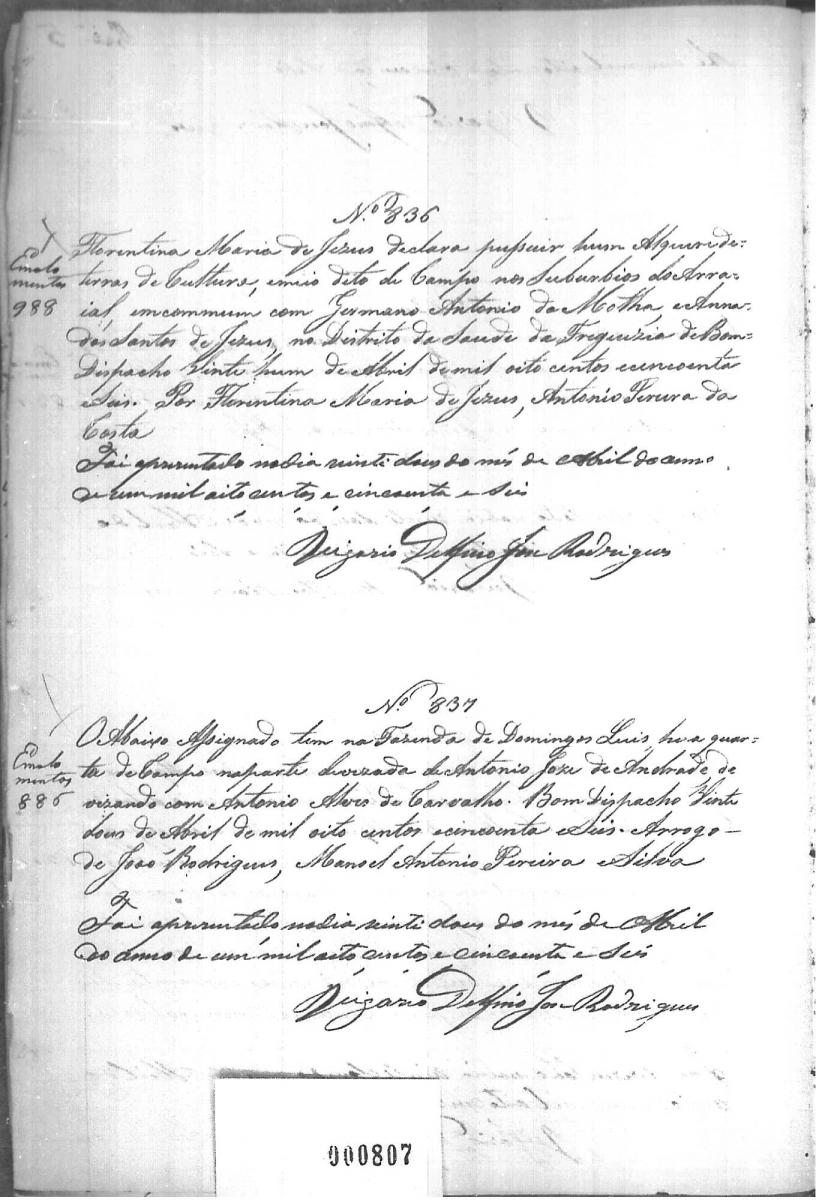 N.º 836
Florentina Maria de Jezus declara pussuir hum Alqueire de-
Emolo
mentos
988
terras de Cultura, emeio deto de Campo nos Suburbios do Arra-
ial, emcommum com Germano Antonio da Motha, e Anna
dos Santos de Jezus, no Distrito da Saude da Freguizia de Bom-
Dispacho Vinte hum de Abril de mil oito centos ecincoenta
e Seis. Por Florentina Maria de Jezus, Antonio Pereira da
Costa
Foi aprezentado nodia vinte dous do mês de Abril do anno
de um mil oito centos e cincoenta e Seis
Veigario Delfino José Rodrigues
N.º 837
O Abaixo Assignado tem na Fazenda de Domingos Luis, hua quar-
Emolo
mentos
886
ta de Campo naparte devizada de Antonio Joze de Andrade, de
vizando com Antonio Alves de Carvalho. Bom Dispacho Vinte
dous de Abril de mil oito centos ecincoenta e Seis. Arrogo-
de João Rodrigues, Manoel Antonio Pereira e Silva
Foi aprezentado nodia vinte dous do mês de Abril
do anno de um mil oito centos e cincoenta e Seis
Veigario Delfino José Rodrigues
000807